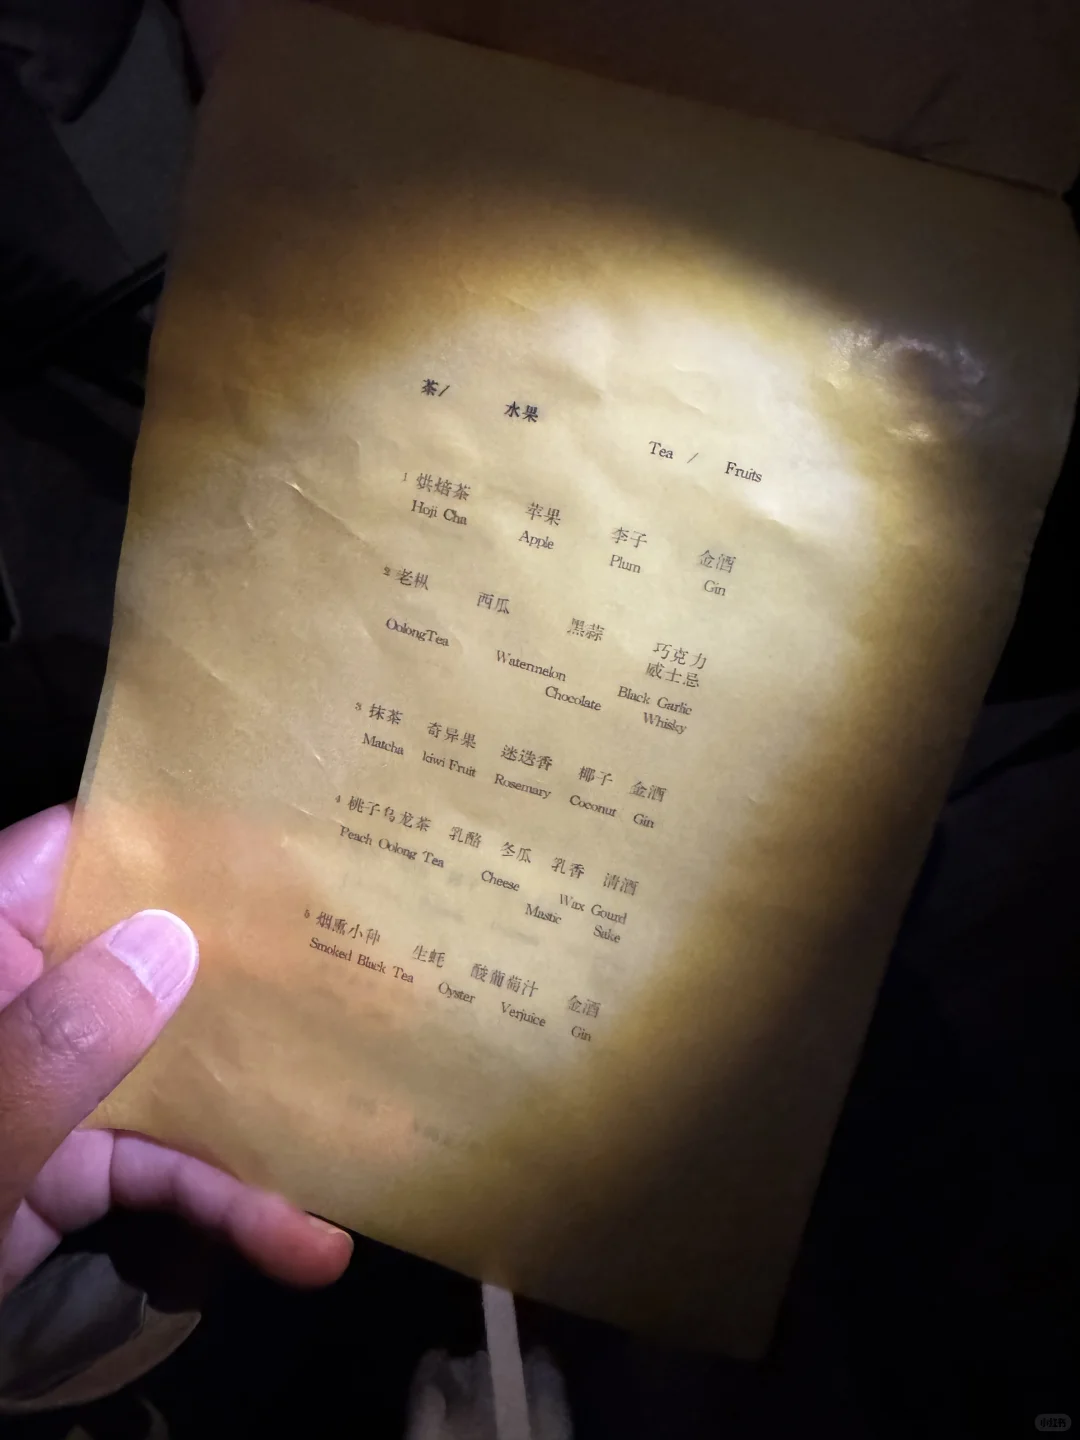 茶/ 水果
Tea / Fruits
1 烘焙茶 苹果 李子 金酒
Hoji Cha Apple Plum Gin
2 老枞 西瓜 黑蒜 巧克力
威士忌
OolongTea Watermelon Black Garlic
Chocolate Whisky
3 抹茶 奇异果 迷迭香 椰子 金酒
Matcha kiwi Fruit Rosemary Coconut Gin
4 桃子乌龙茶 乳酪 冬瓜 乳香 清酒
Peach Oolong Tea Cheese Wax Gourd
Mastic Sake
5 烟熏小种 生蚝 酸葡萄汁 金酒
Smoked Black Tea Oyster Verjuice Gin
小红书